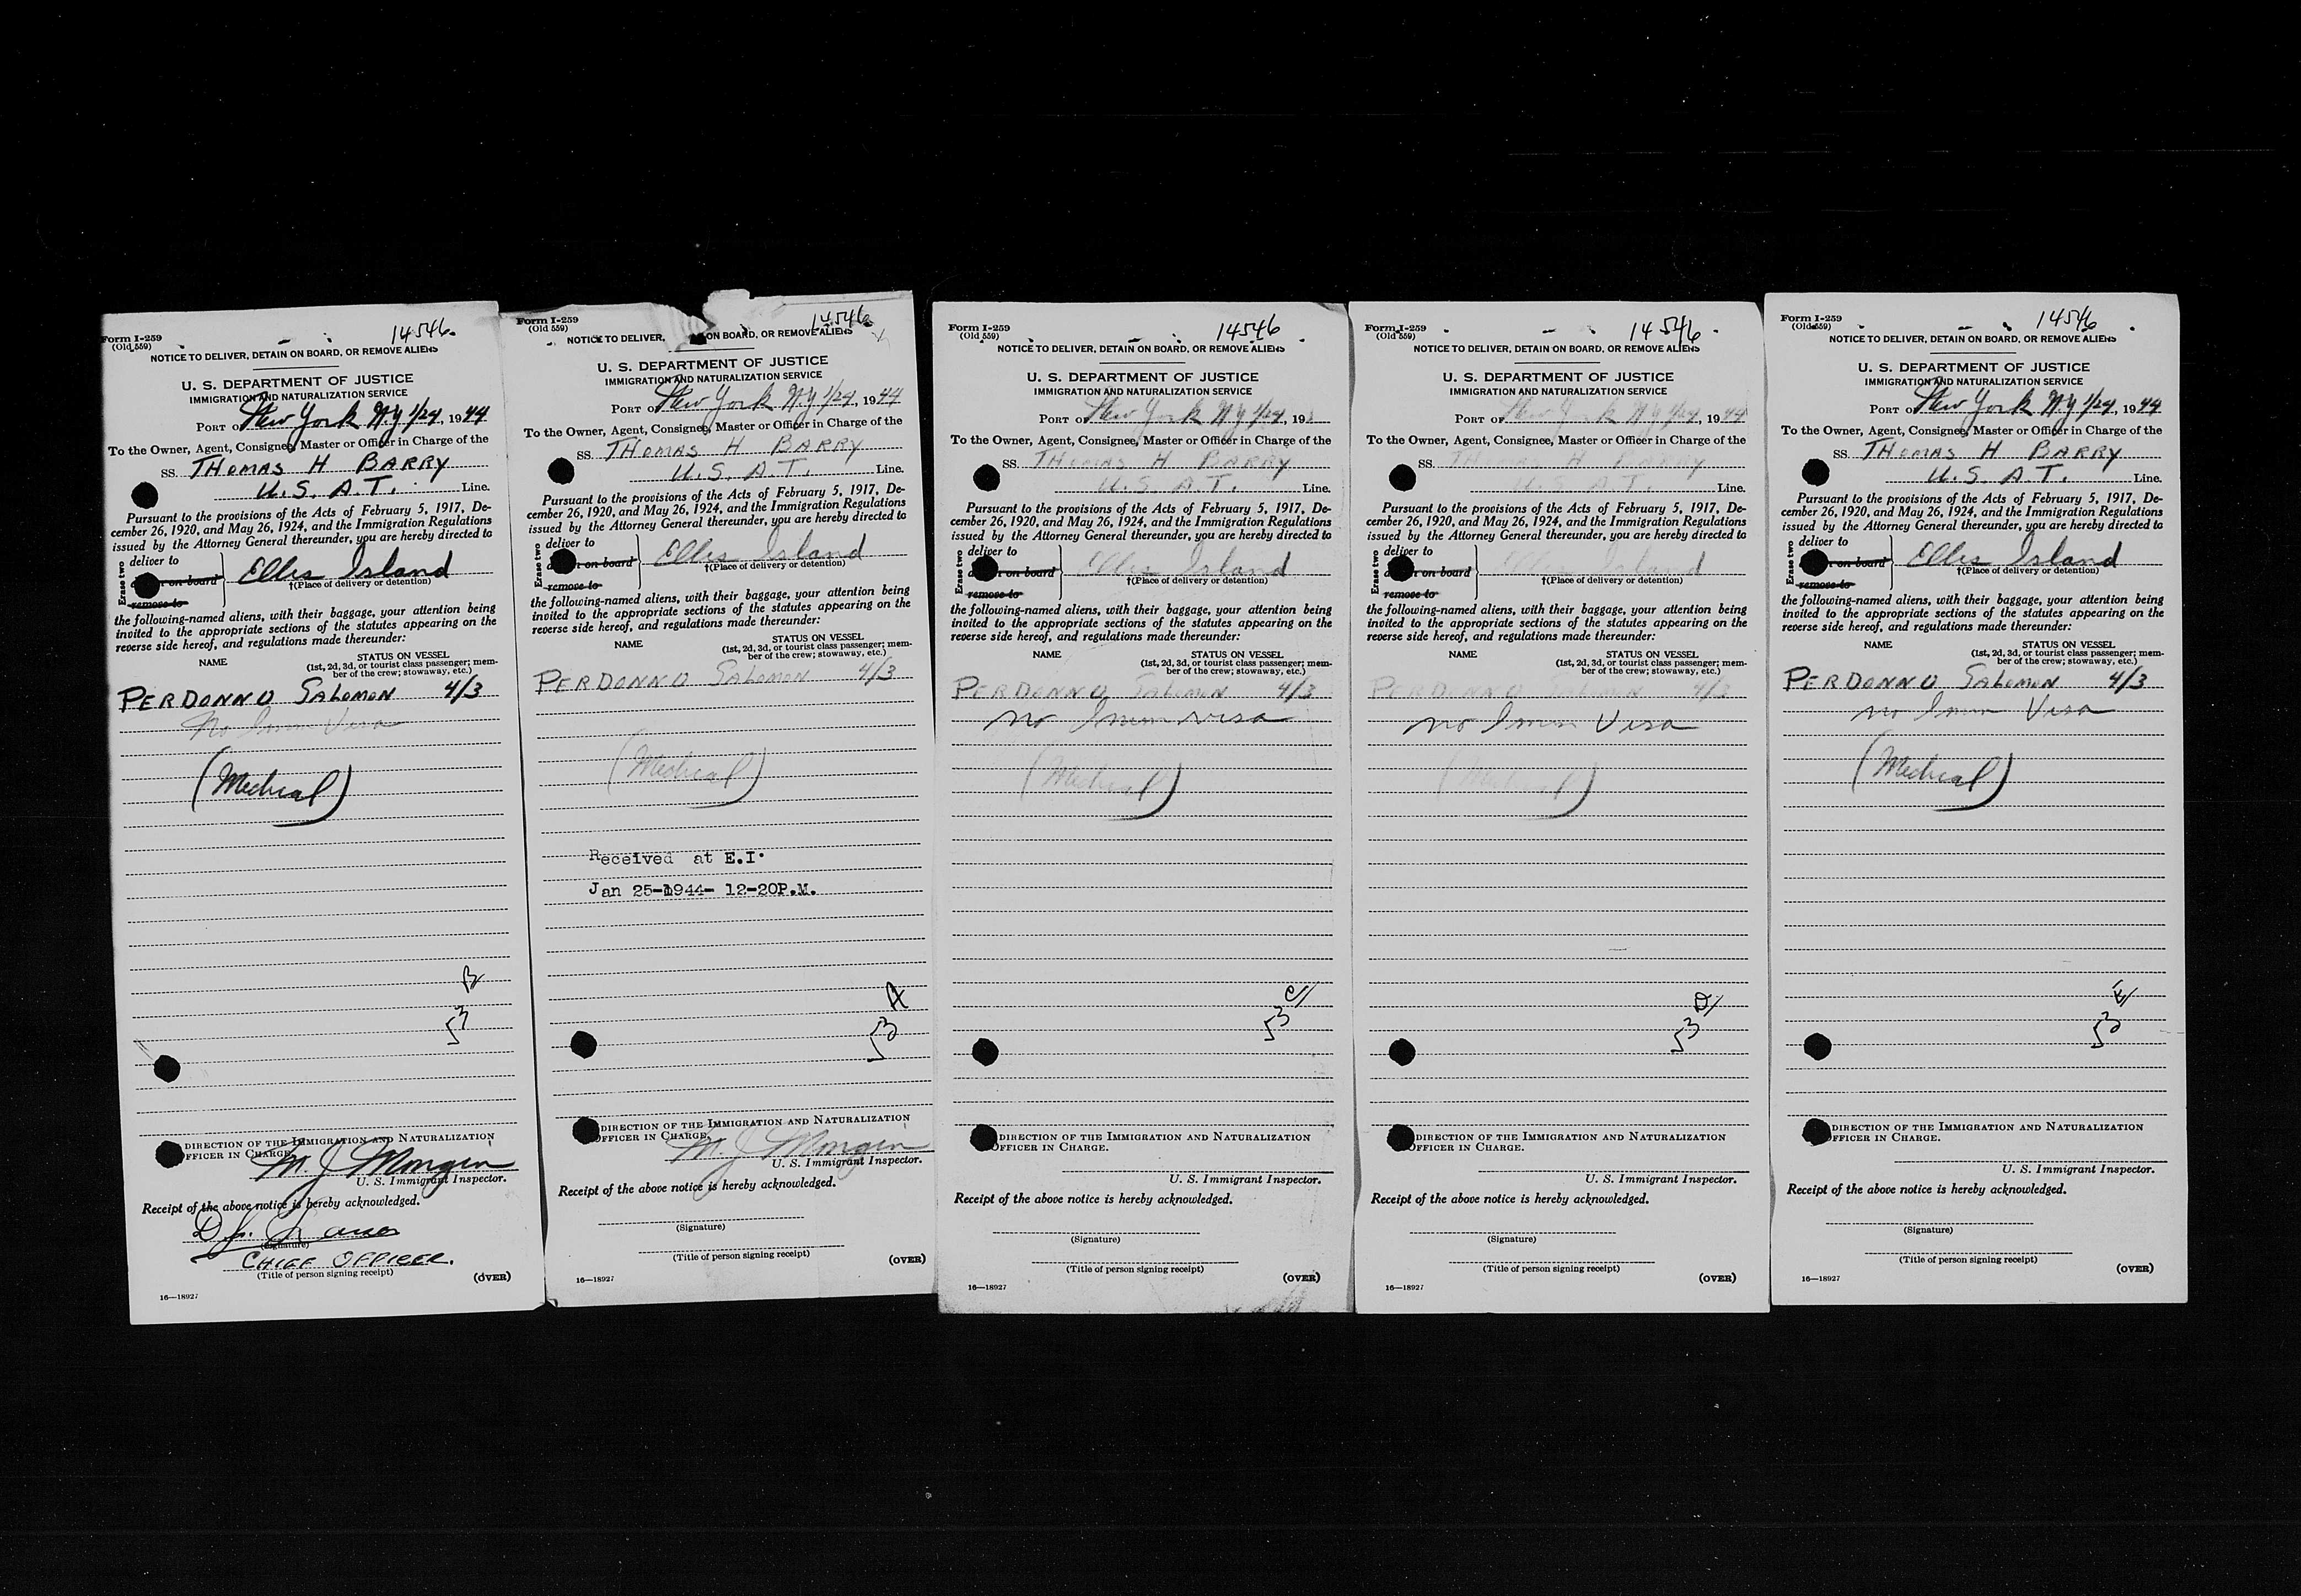 Form I-259
(Old 559)
14546
NOTICE TO DELIVER, DETAIN ON BOARD, OR REMOVE ALIENS
U. S. DEPARTMENT OF JUSTICE
IMMIGRATION AND NATURALIZATION SERVICE
PORT OF New York N.Y 1/24, 1944
To the Owner, Agent, Consignee, Master or Officer in Charge of the
SS. THOMAS H BARRY
U.S. A.T. Line.
Pursuant to the provisions of the Acts of February 5, 1917, De-
cember 26, 1920, and May 26, 1924, and the Immigration Regulations
issued by the Attorney General thereunder, you are hereby directed to
Erase two
deliver to
on board
remove to
Ellis Island
†(Place of delivery or detention)
the following-named aliens, with their baggage, your attention being
invited to the appropriate sections of the statutes appearing on the
reverse side hereof, and regulations made thereunder:
NAME
STATUS ON VESSEL
(1st, 2d, 3d, or tourist class passenger; mem-
ber of the crew; stowaway, etc.)
PERDONNO SALOMON 4/3
No Imm Visa
(Medical)
53 B
DIRECTION OF THE IMMIGRATION AND NATURALIZATION
OFFICER IN CHARGE.
M. J.
U. S. Immigrant Inspector.
Receipt of the above notice is hereby acknowledged.
(Signature)
CHIEF OFFICER.
(Title of person signing receipt)
(OVER)
16—18927
Form I-259
(Old 559)
14546
NOTICE TO DELIVER, ON BOARD, OR REMOVE ALIENS
U. S. DEPARTMENT OF JUSTICE
IMMIGRATION AND NATURALIZATION SERVICE
PORT OF New York N.Y 1/24, 1944
To the Owner, Agent, Consignee, Master or Officer in Charge of the
SS. THOMAS H BARRY
U.S. A.T. Line.
Pursuant to the provisions of the Acts of February 5, 1917, De-
cember 26, 1920, and May 26, 1924, and the Immigration Regulations
issued by the Attorney General thereunder, you are hereby directed to
Erase two
deliver to
on board
remove to
Ellis Island
†(Place of delivery or detention)
the following-named aliens, with their baggage, your attention being
invited to the appropriate sections of the statutes appearing on the
reverse side hereof, and regulations made thereunder:
NAME
STATUS ON VESSEL
(1st, 2d, 3d, or tourist class passenger; mem-
ber of the crew; stowaway, etc.)
PERDONNO SALOMON 4/3
(Medical)
Received at E.I.
Jan 25-1944- 12-20P.M.
53 A
DIRECTION OF THE IMMIGRATION AND NATURALIZATION
OFFICER IN CHARGE.
M. J.
U. S. Immigrant Inspector.
Receipt of the above notice is hereby acknowledged.
(Signature)
(Title of person signing receipt)
(OVER)
16—18927
Form I-259
(Old 559)
14546
NOTICE TO DELIVER, DETAIN ON BOARD, OR REMOVE ALIENS
U. S. DEPARTMENT OF JUSTICE
IMMIGRATION AND NATURALIZATION SERVICE
PORT OF New York N.Y 1/24, 19
To the Owner, Agent, Consignee, Master or Officer in Charge of the
SS. THOMAS H BARRY
U.S. A.T. Line.
Pursuant to the provisions of the Acts of February 5, 1917, De-
cember 26, 1920, and May 26, 1924, and the Immigration Regulations
issued by the Attorney General thereunder, you are hereby directed to
Erase two
deliver to
on board
remove to
Ellis Island
†(Place of delivery or detention)
the following-named aliens, with their baggage, your attention being
invited to the appropriate sections of the statutes appearing on the
reverse side hereof, and regulations made thereunder:
NAME
STATUS ON VESSEL
(1st, 2d, 3d, or tourist class passenger; mem-
ber of the crew; stowaway, etc.)
PERDONNO SALOMON 4/3
no Imm visa
(Medical)
53 C/
DIRECTION OF THE IMMIGRATION AND NATURALIZATION
OFFICER IN CHARGE.
U. S. Immigrant Inspector.
Receipt of the above notice is hereby acknowledged.
(Signature)
(Title of person signing receipt)
(OVER)
16—18927
Form I-259
(Old 559)
14546
NOTICE TO DELIVER, DETAIN ON BOARD, OR REMOVE ALIENS
U. S. DEPARTMENT OF JUSTICE
IMMIGRATION AND NATURALIZATION SERVICE
PORT OF New York N.Y 1/24, 1944
To the Owner, Agent, Consignee, Master or Officer in Charge of the
SS. THOMAS H BARRY
U.S. A.T. Line.
Pursuant to the provisions of the Acts of February 5, 1917, De-
cember 26, 1920, and May 26, 1924, and the Immigration Regulations
issued by the Attorney General thereunder, you are hereby directed to
Erase two
deliver to
on board
remove to
Ellis Island
†(Place of delivery or detention)
the following-named aliens, with their baggage, your attention being
invited to the appropriate sections of the statutes appearing on the
reverse side hereof, and regulations made thereunder:
NAME
STATUS ON VESSEL
(1st, 2d, 3d, or tourist class passenger; mem-
ber of the crew; stowaway, etc.)
PERDONNO SALOMON 4/3
no Imm Visa
(Medical)
53 D/
DIRECTION OF THE IMMIGRATION AND NATURALIZATION
OFFICER IN CHARGE.
U. S. Immigrant Inspector.
Receipt of the above notice is hereby acknowledged.
(Signature)
(Title of person signing receipt)
(OVER)
16—18927
Form I-259
(Old 559)
14546
NOTICE TO DELIVER, DETAIN ON BOARD, OR REMOVE ALIENS
U. S. DEPARTMENT OF JUSTICE
IMMIGRATION AND NATURALIZATION SERVICE
PORT OF New York N.Y 1/24, 1944
To the Owner, Agent, Consignee, Master or Officer in Charge of the
SS. THOMAS H BARRY
U.S. A.T. Line.
Pursuant to the provisions of the Acts of February 5, 1917, De-
cember 26, 1920, and May 26, 1924, and the Immigration Regulations
issued by the Attorney General thereunder, you are hereby directed to
Erase two
deliver to
on board
remove to
Ellis Island
†(Place of delivery or detention)
the following-named aliens, with their baggage, your attention being
invited to the appropriate sections of the statutes appearing on the
reverse side hereof, and regulations made thereunder:
NAME
STATUS ON VESSEL
(1st, 2d, 3d, or tourist class passenger; mem-
ber of the crew; stowaway, etc.)
PERDONNO SALOMON 4/3
no Imm Visa
(Medical)
53 E/
DIRECTION OF THE IMMIGRATION AND NATURALIZATION
OFFICER IN CHARGE.
U. S. Immigrant Inspector.
Receipt of the above notice is hereby acknowledged.
(Signature)
(Title of person signing receipt)
(OVER)
16—18927